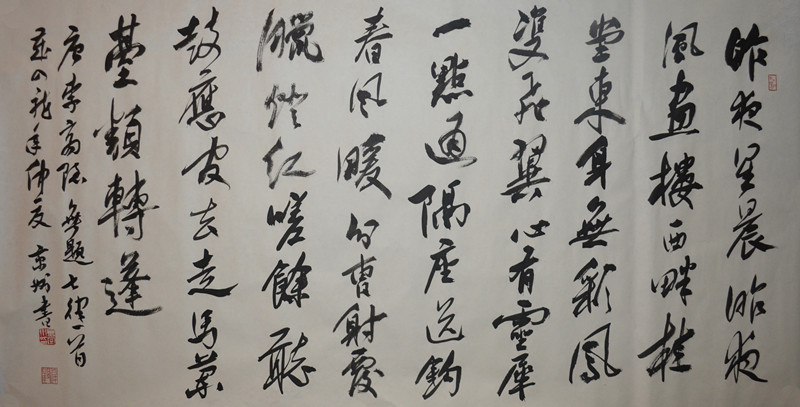 昨夜星晨昨夜
風畫樓西畔桂
堂東身無彩鳳
雙飛翼心有靈犀
一點通隔座送鈎
春风暖分曹射覆
臘燈红嗟餘聽
鼓應官去走馬蘭
臺類轉蓬
唐李商隐無題七律一首
龍年仲夏書